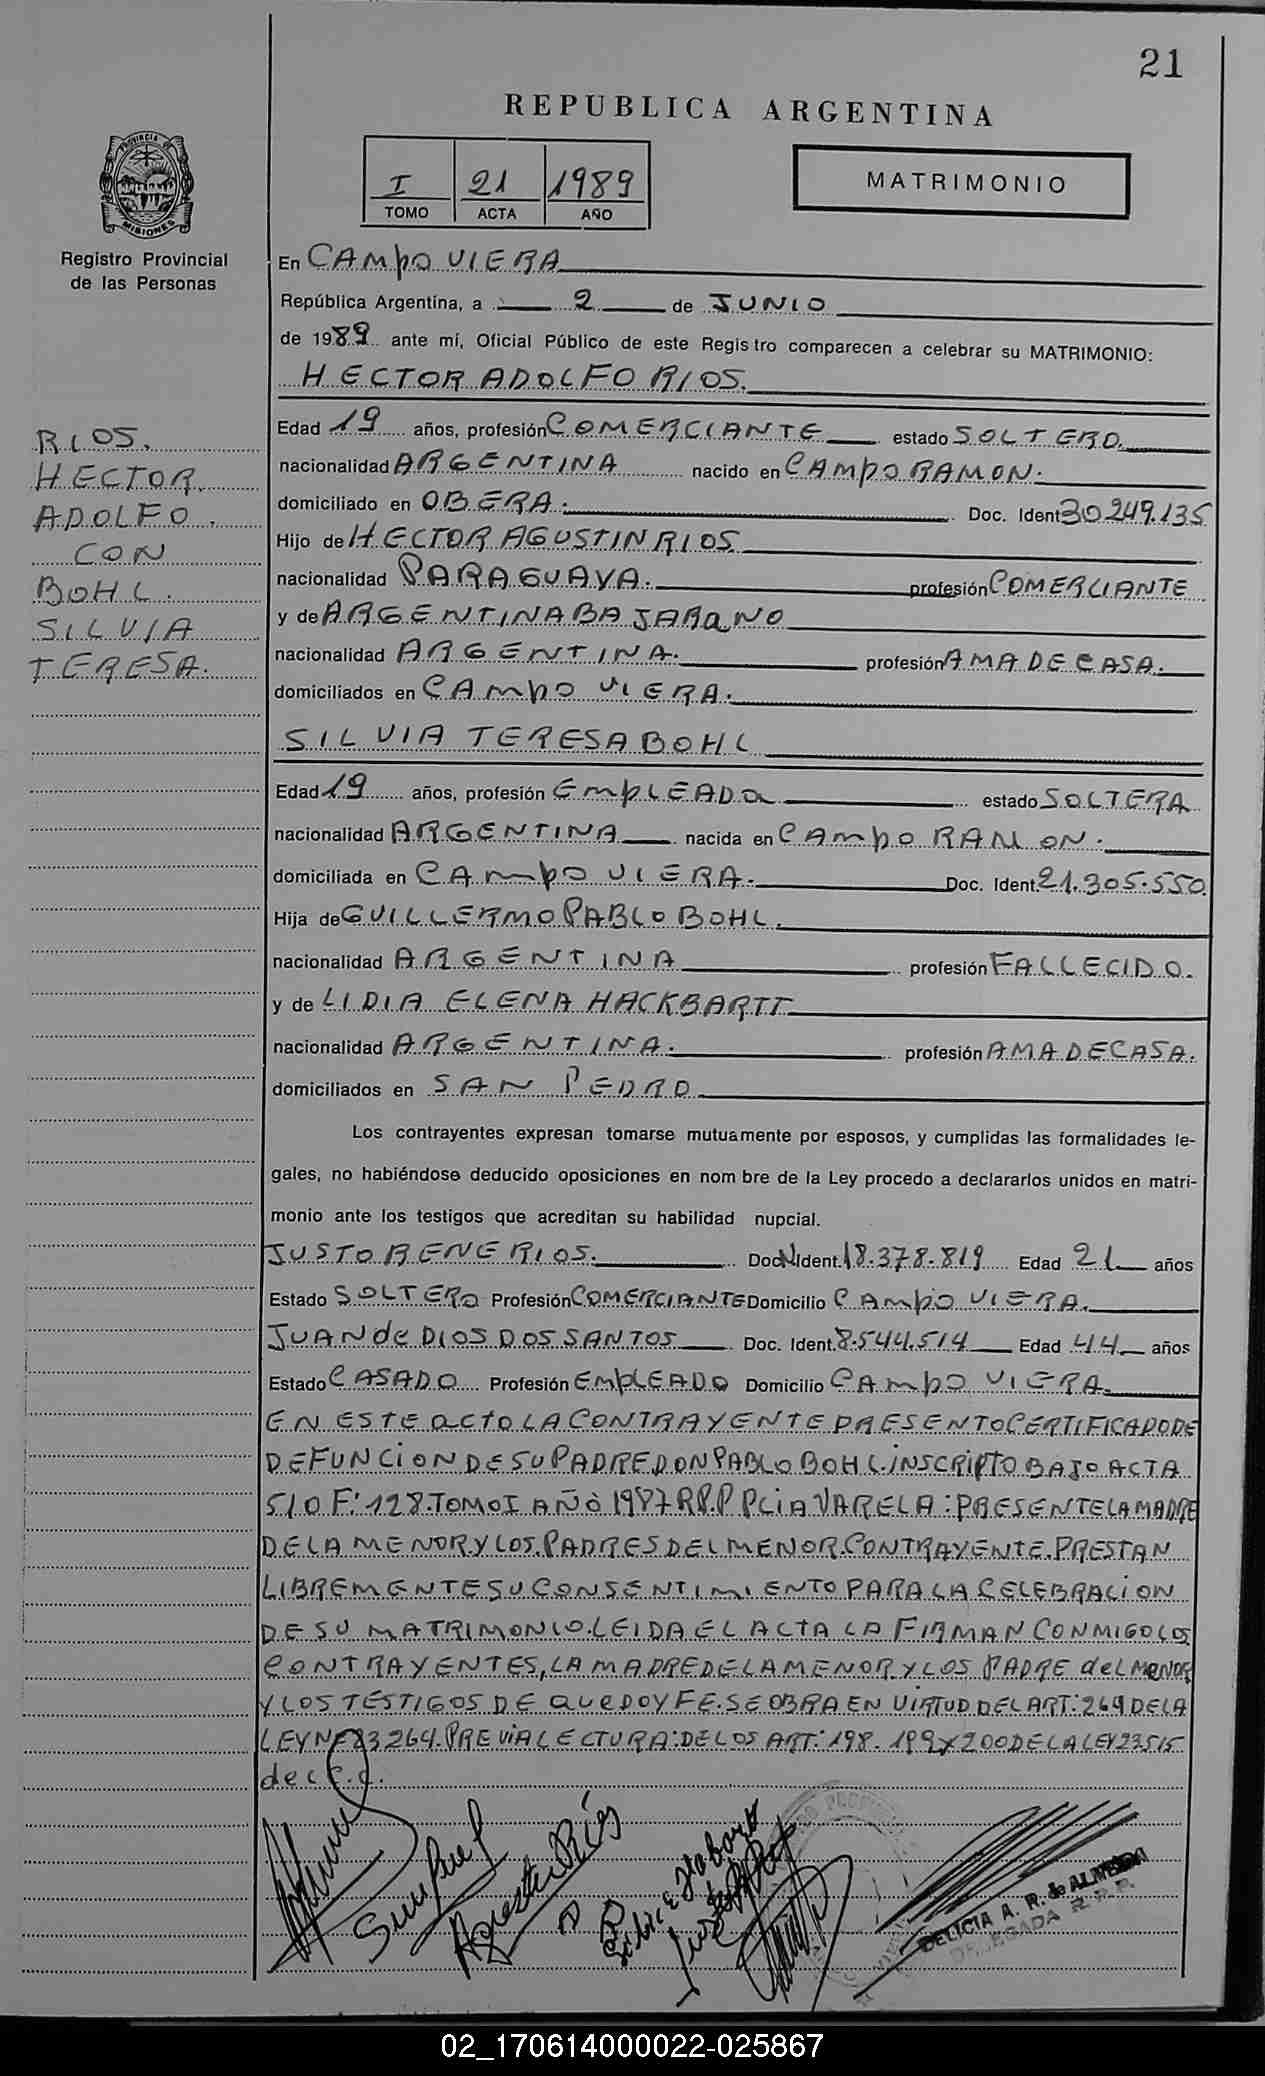 21
REPUBLICA ARGENTINA
I 21 1989
TOMO ACTA AÑO
MATRIMONIO
PROVINCIA DE
MISIONES
Registro Provincial
de las Personas
RIOS.
HECTOR
ADOLFO.
CON
BOHL.
SILVIA
TERESA.
En CAMPO VIERA
República Argentina, a 2 de JUNIO
de 1989 ante mí, Oficial Público de este Registro comparecen a celebrar su MATRIMONIO:
HECTOR ADOLFO RIOS.
Edad 19 años, profesión COMERCIANTE estado SOLTERO.
nacionalidad ARGENTINA nacido en CAMPO RAMON.
domiciliado en OBERA. Doc. Ident 30249.135
Hijo de HECTOR AGUSTIN RIOS
nacionalidad PARAGUAYA. profesión COMERCIANTE
y de ARGENTINA BAJARANO
nacionalidad ARGENTINA. profesión AMA DE CASA.
domiciliados en CAMPO VIERA.
SILVIA TERESA BOHL
Edad 19 años, profesión EMPLEADA estado SOLTERA
nacionalidad ARGENTINA nacida en CAMPO RAMON.
domiciliada en CAMPO VIERA. Doc. Ident. 21.305.550
Hija de GUILLERMO PABLO BOHL.
nacionalidad ARGENTINA profesión FALLECIDO.
y de LIDIA ELENA HACKBARTT
nacionalidad ARGENTINA. profesión AMA DE CASA.
domiciliados en SAN PEDRO
Los contrayentes expresan tomarse mutuamente por esposos, y cumplidas las formalidades le-
gales, no habiéndose deducido oposiciones en nombre de la Ley procedo a declararlos unidos en matri-
monio ante los testigos que acreditan su habilidad nupcial.
JUSTO RENE RIOS. Doc. N Ident. 18.378.819 Edad 21 años
Estado SOLTERO Profesión COMERCIANTE Domicilio CAMPO VIERA.
JUAN de DIOS DOS SANTOS Doc. Ident. 8.544.514 Edad 44 años
Estado CASADO Profesión EMPLEADO Domicilio CAMPO VIERA.
EN ESTE ACTO LA CONTRAYENTE PRESENTO CERTIFICADO DE
DEFUNCION DE SU PADRE DON PABLO BOHL. INSCRIPTO BAJO ACTA
510 F: 128. TOMO I AÑO 1987 R.P.P PCIA VARELA: PRESENTE LA MADRE
DE LA MENOR Y LOS PADRES DEL MENOR CONTRAYENTE. PRESTAN
LIBREMENTE SU CONSENTIMIENTO PARA LA CELEBRACION
DE SU MATRIMONIO. LEIDA EL ACTA LA FIRMAN CONMIGO LOS
CONTRAYENTES, LA MADRE DE LA MENOR Y LOS PADRE del MENOR
Y LOS TESTIGOS DE QUE DOY FE. SE OBRA EN VIRTUD DEL ART: 269 DE LA
LEY Nº 23264. PREVIA LECTURA: DE LOS ART: 198. 199 Y 200 DE LA LEY 23515
del C.C.
Agustin Ríos
DELICIA A. R. de ALMEIDA
DELEGADA R. P. P.
02_170614000022-025867